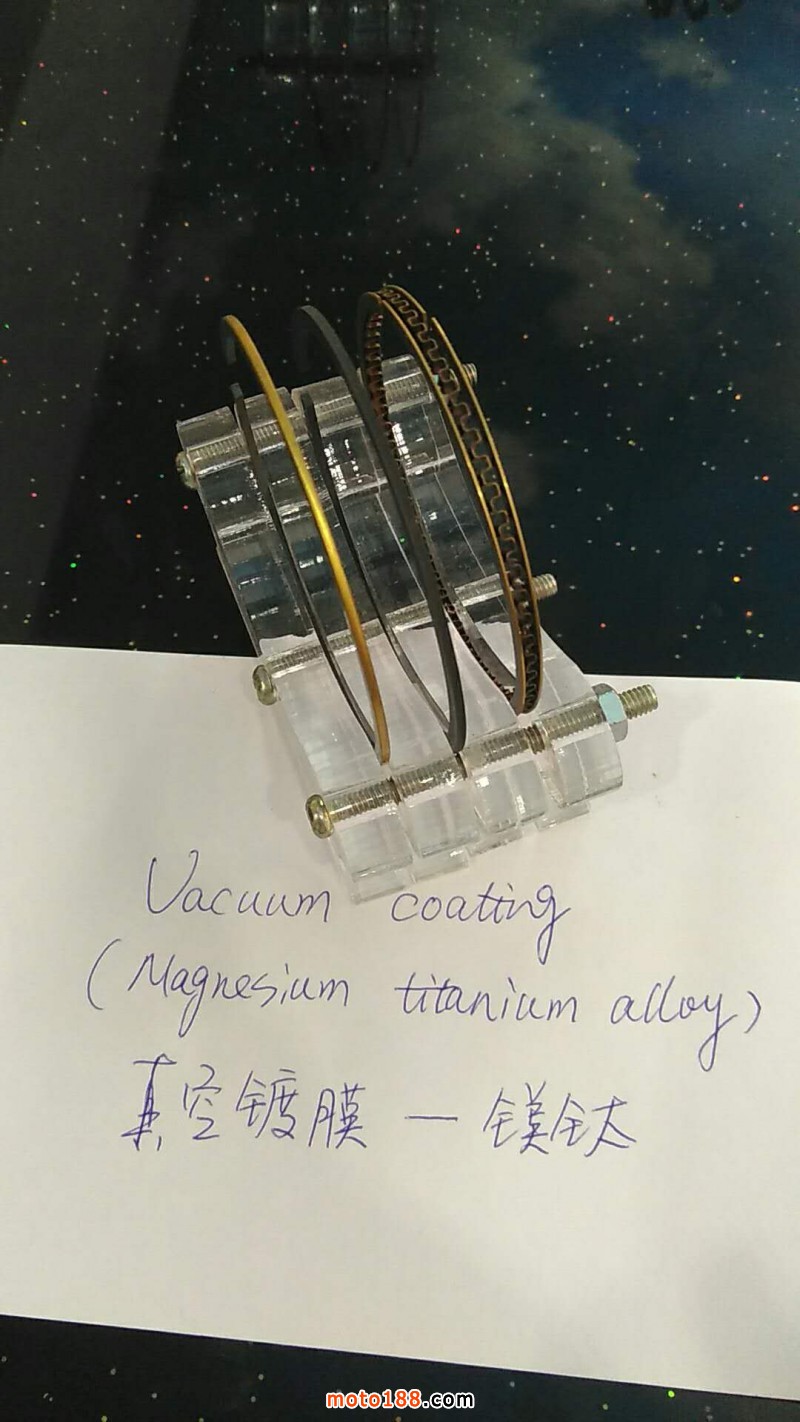 Vacuum coating
(Magnesium titanium alloy)
真空镀膜 — 镁钛
moto188.com